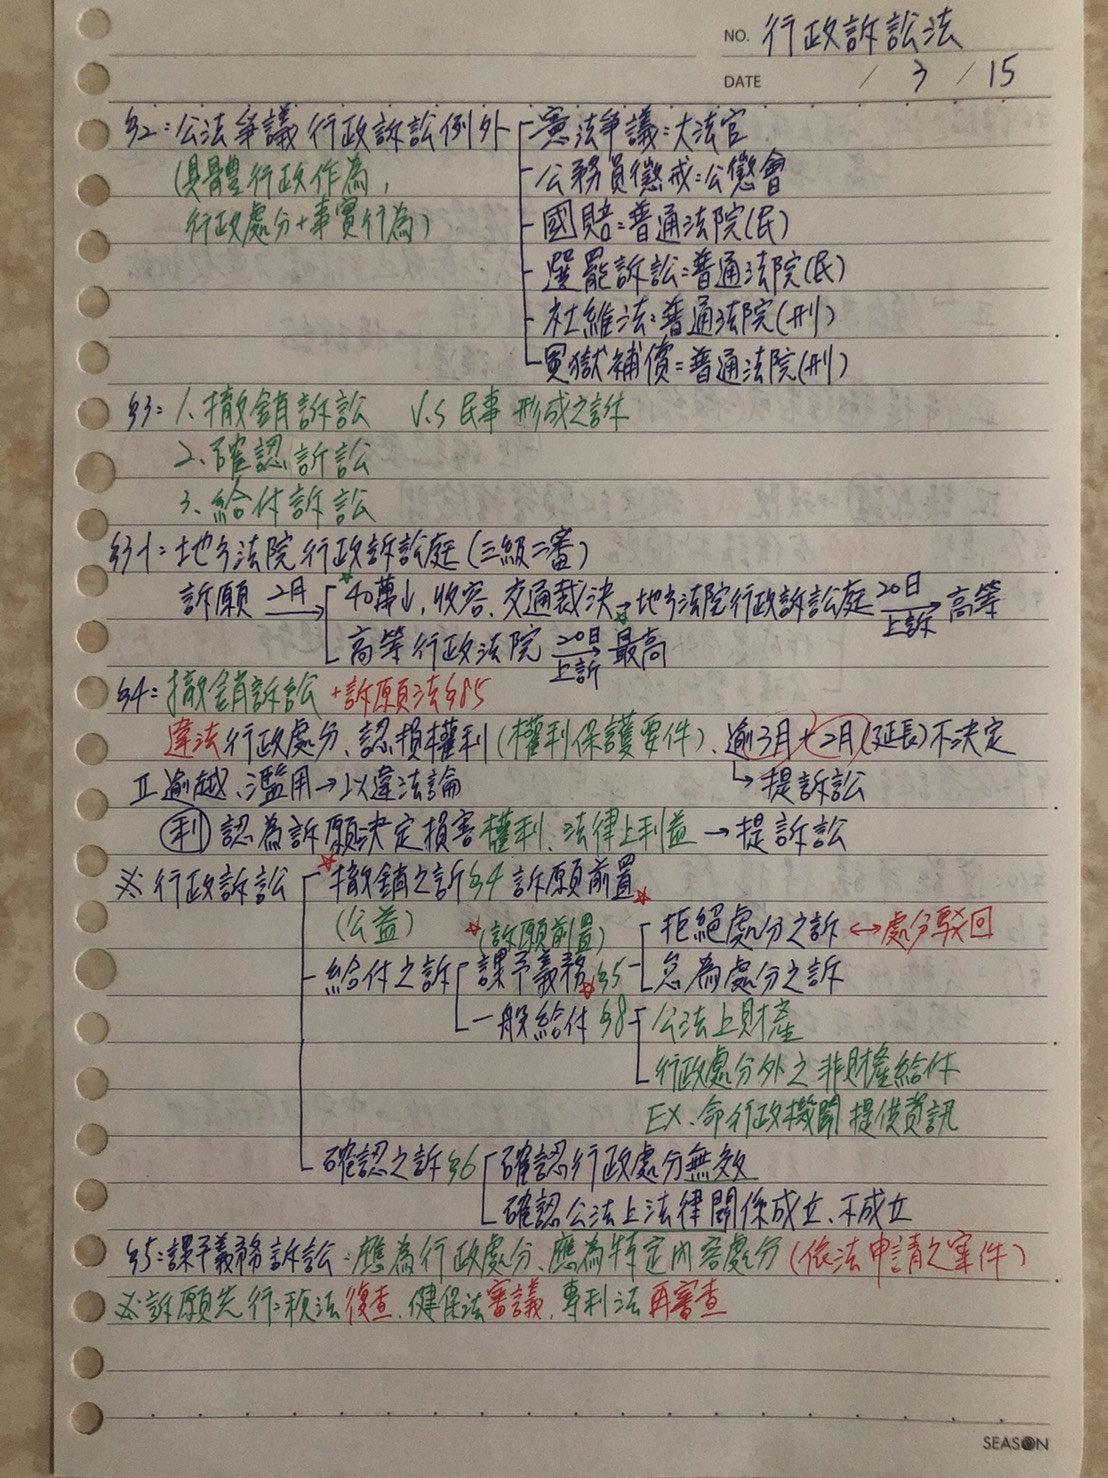 NO. 行政訴訟法
DATE / 3 / 15
§2:公法爭議行政訴訟例外 憲法爭議:大法官
(具體行政作為, 公務員懲戒:公懲會
行政處分+事實行為) 國賠=普通法院(民)
選罷訴訟=普通法院(民)
社維法:普通法院(刑)
冤獄補償=普通法院(刑)
§3: 1.撤銷訴訟 V.S 民事形成之訴
2.確認訴訟
3.給付訴訟
§3-1:地方法院行政訴訟庭(三級二審)
訴願 2月→ 40萬↓,收容、交通裁決→地方法院行政訴訟庭 20日→上訴 高等
高等行政法院 20日→上訴 最高
§4:撤銷訴訟+訴願法§85
違法行政處分、認損權利(權利保護要件)、逾3月+2月(延長)不決定
Ⅱ逾越、濫用→以違法論 ↳提訴訟
利 認為訴願決定損害權利、法律上利益→提訴訟
※行政訴訟 撤銷之訴§4 訴願前置
(公益) (訴願前置) 拒絕處分之訴↔處分駁回
給付之訴 課予義務§5 怠為處分之訴
一般給付§8 公法上財產
行政處分外之非財產給付
EX.命行政機關提供資訊
確認之訴§6 確認行政處分無效
確認公法上法律關係成立、不成立
§5:課予義務訴訟:應為行政處分、應為特定內容處分(依法申請之案件)
※訴願先行:稅法復查、健保法審議、專利法再審查
SEASON